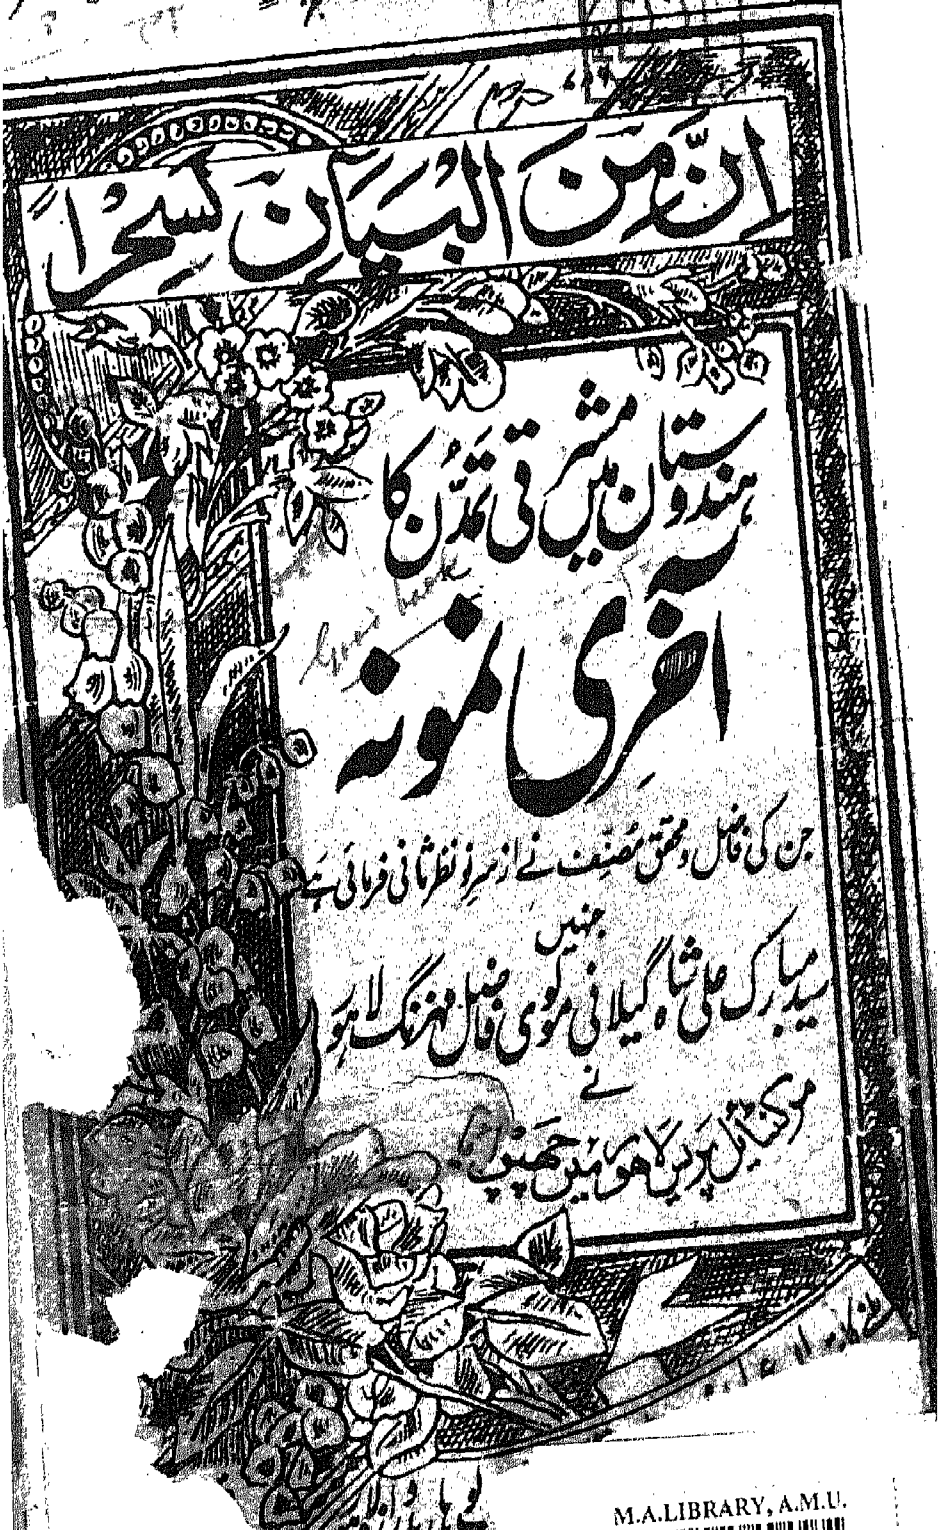 اِنَّ مِنَ الْبَيَانِ لَسِحْرًا
ہندوستان میں مشرقی تمدّن کا
آخری نمونہ
جن کی فاضل و محقق مُصنّف نے از سرِ نو نظر ثانی فرمائی ہے
جنہیں
سید مبارک علی شاہ گیلانی مولوی فاضل مہرنگ لاہور
نے
مرکنٹائل پریس لاہور میں
Good book
M.A.LIBRARY, A.M.U.